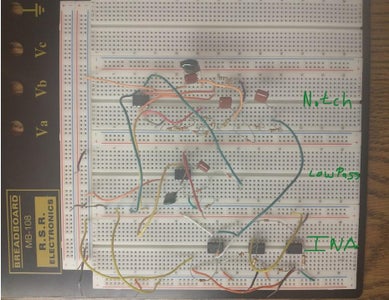 Vc
Vb
Va
BREADBOARD
MB-108
R.S.R.
ELECTRONICS
Notch
LowPass
INA